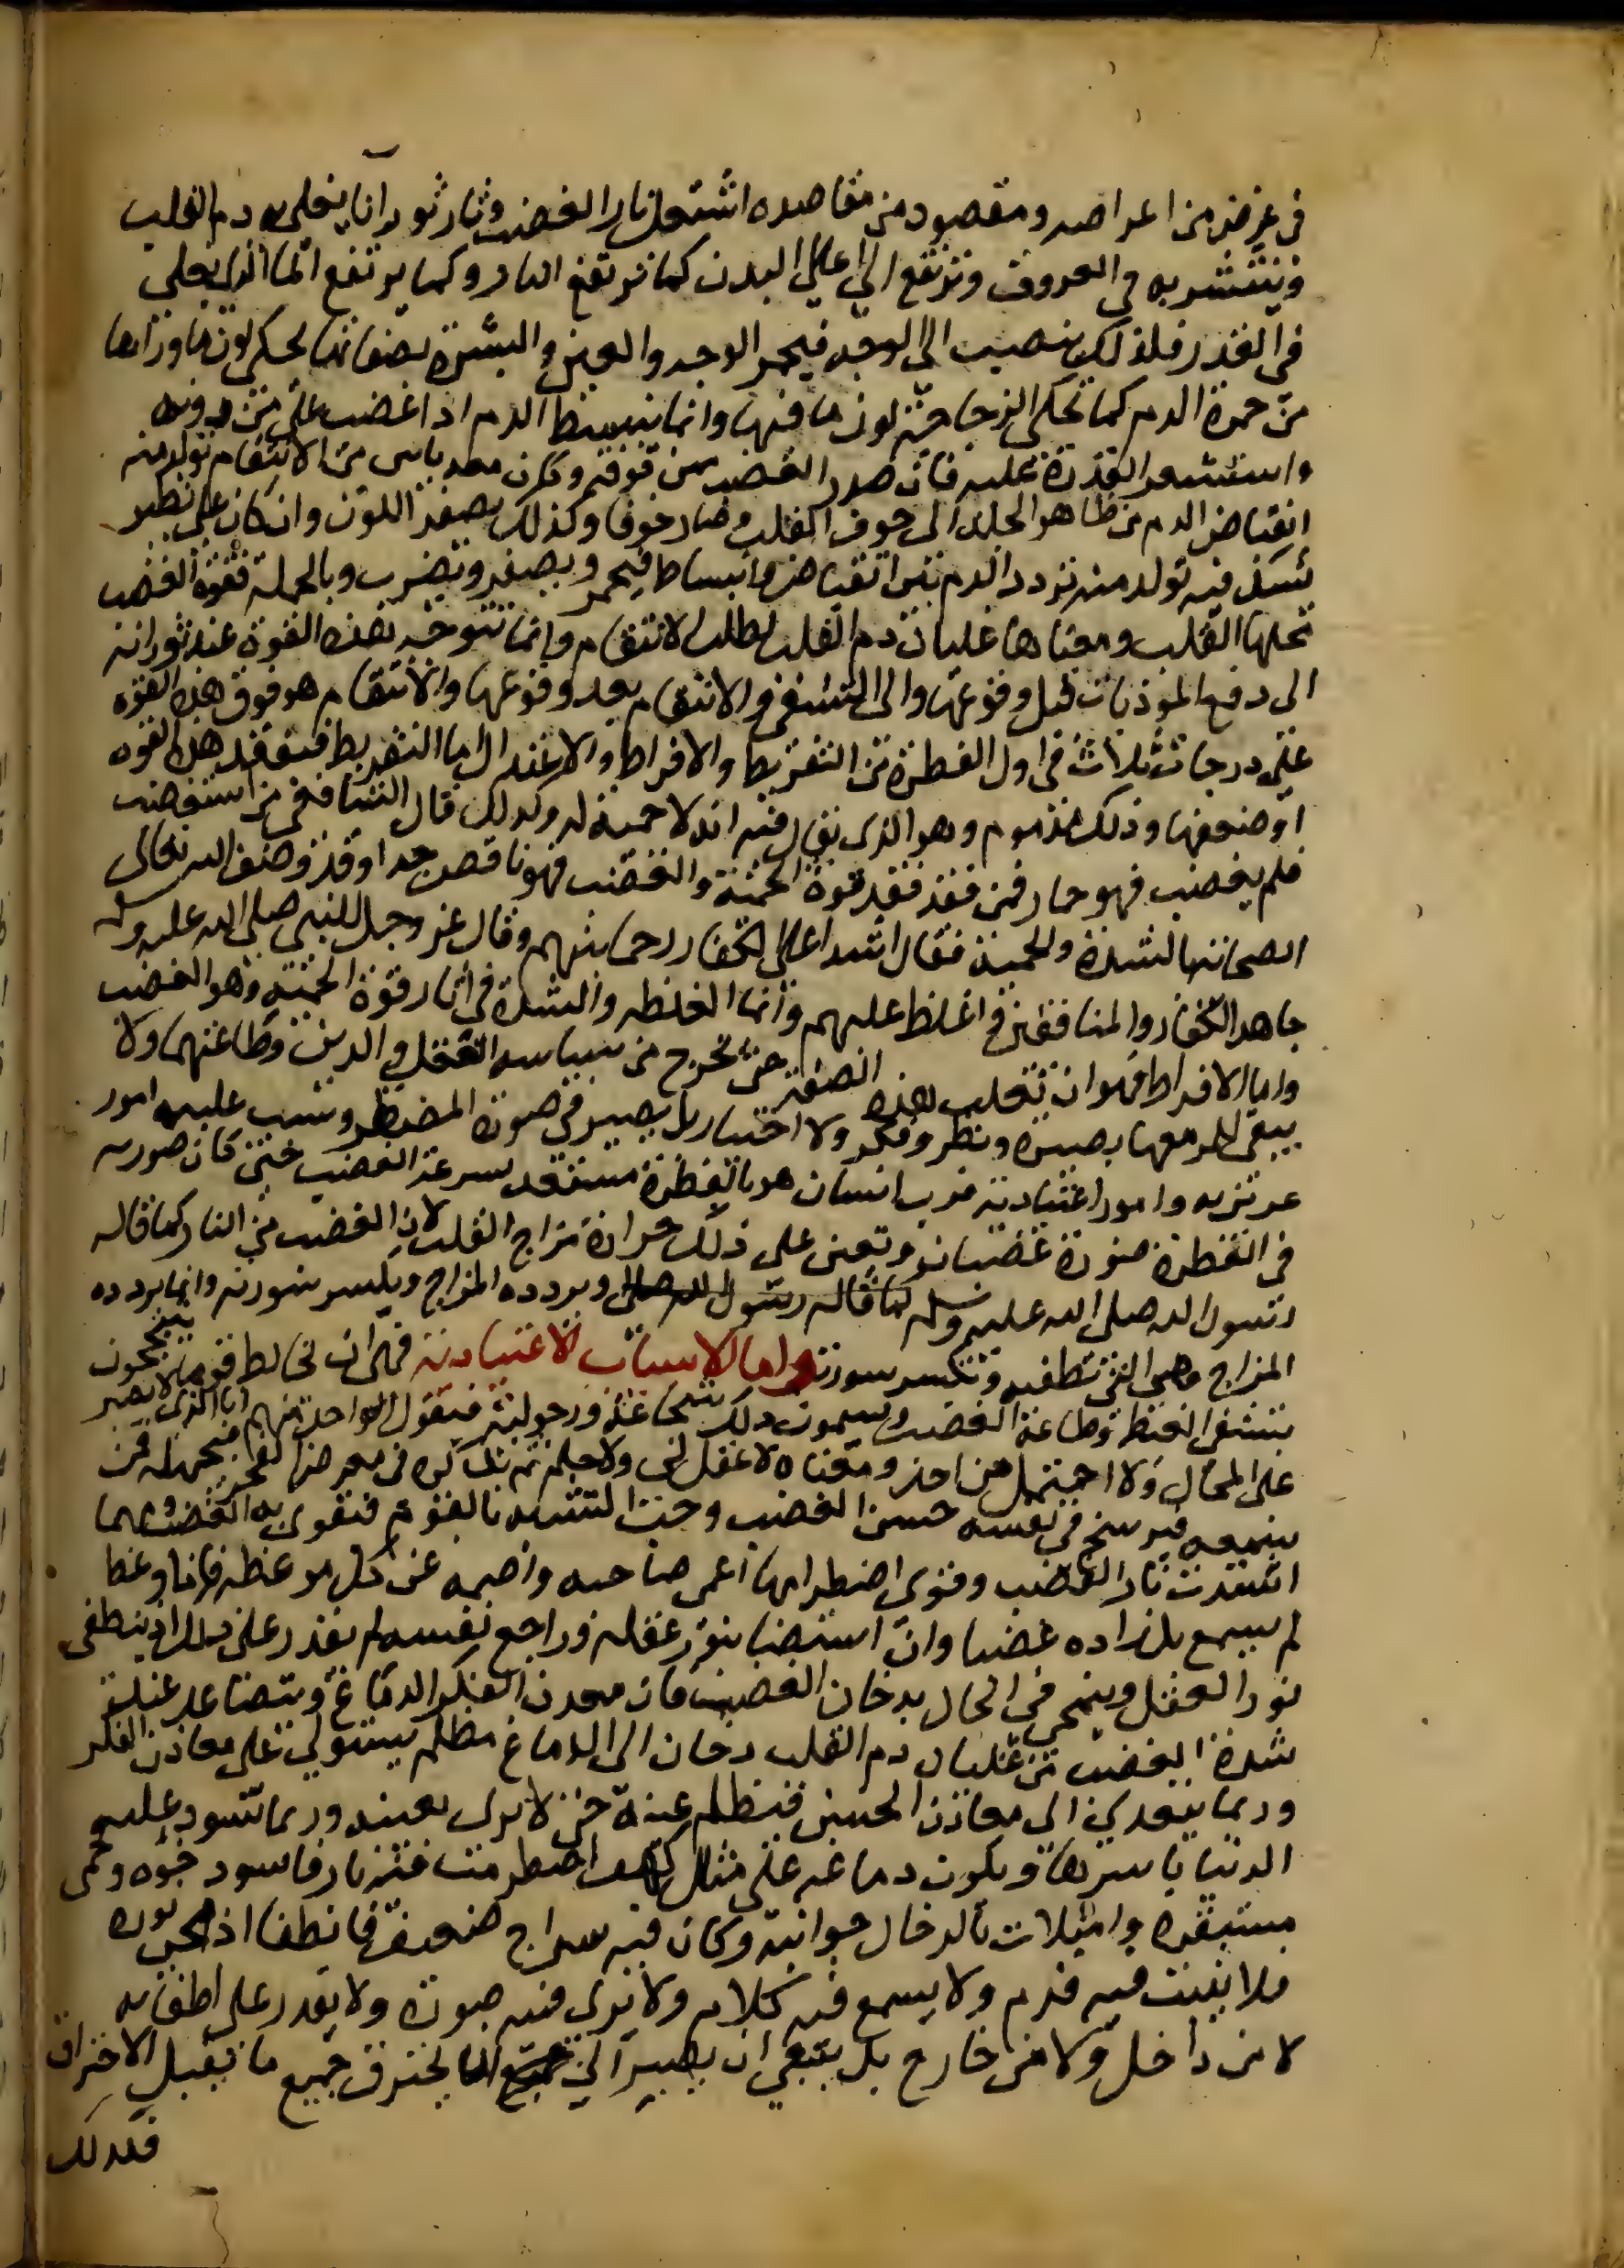 في غرض من اغراضه ومقصود من مقاصده اشتعل نار الغضب وثار ثورانا يغلي به دم القلب
وينتشر به في العروق وترتفع الى اعالي البدن كما ترتفع النار وكما يرتفع الما الذي يغلي
في القدر فلذلك ينصب الى الوجه فيحمر الوجه والعين والبشرة لصفائها تحكي لون ما وراها
من حمرة الدم كما تحكي الزجاجة لون ما فيها وانما ينبسط الدم اذا غضب على من دونه
واستشعر القدرة عليه فان صدر الغضب ممن فوقه وكان معه ياس من الانتقام تولد منه
انقباض الدم من ظاهر الجلد الى جوف القلب وصار خوفا وكذلك يصفر اللون وان كان على نظير
يشك فيه تولد منه تردد الدم بين انقباض وانبساط فيحمر ويصفر ويضرب وبالجملة فقوة الغضب
محلها القلب ومعناها غليان دم القلب لطلب الانتقام وانما تتوجه هذه القوة عند ثورانه
الى دفع الموذيات قبل وقوعها والى التشفي والانتقام بعد وقوعها والانتقام هو قوت هذه القوة
على درجات ثلاث في اول الفطرة من التفريط والافراط والاعتدال اما التفريط ففقد هذه القوة
او ضعفها وذلك مذموم وهو الذي يقال فيه انه لا حمية له وكذلك قال الشافعي من استغضب
فلم يغضب فهو حمار فمن فقد فقد قوة الحمية والغضب فهو ناقص جدا وقد وصف الله تعالى
الصحابة بالشدة والحمية فقال اشدا على الكفار رحما بينهم وقال عز وجل للنبي صلى الله عليه وسلم
جاهد الكفار والمنافقين واغلظ عليهم وانما الغلظة والشدة في اثار قوة الحمية وهو الغضب
واما الافراط فهو ان تغلب هذه الصفة حتى تخرج من سياسة العقل والدين وطاعتهما ولا
يبقى للمر معها بصيرة ونظر وفكر ولا اختيار بل يصير في صورة المضطر وسبب غلبته امور
غريزية وامور اعتيادية فرب انسان هو بالفطرة مستعد لسرعة الغضب حتى كان صورته
في الفطرة صورة غضبان ويعين على ذلك حرارة مزاج القلب لان الغضب من النار كما قاله
رسول الله صلى الله عليه وسلم كما قاله رسول الله صلى وبرودة المزاج ويكسر سورته وانما برودة
المزاج فهي التي تطفيه وتكسر سورته واما الاسباب الاعتيادية فهي ان يخالط قوما يتبجحون
بتشفي الغيظ وطاعة الغضب ويسمون ذلك شجاعة ورجولية فيقول الواحد منهم انا الذي لا يصبر
على المحال ولا احتمل من احد ومعناه لا عقل لي ولا حلم ثم يذكره في معرض الفخر بجهله فمن
سمعه فيرسخ في نفسه حسن الغضب وحب التشبه بالقوم فتقوى به الغضب ومهما
اشتدت نار الغضب وقوي اضطرامها اعمى صاحبه واصمه عن كل موعظة فاذا وعظ
لم يسمع بل زاده غضبا وان استضا بنور عقله وراجع نفسه لم يقدر على ذلك اذ ينطفي
نور العقل وينمحي في الحال بدخان الغضب فان معدن الفكر الدماغ ويتصاعد عند
شدة الغضب من غليان دم القلب دخان الى الدماغ مظلم يستولي على معادن الفكر
وربما يتعدى الى معادن الحس فتظلم عينه حتى لا يرى بعينه وربما تسود عليه
الدنيا باسرها ويكون دماغه على مثال كهف اضطرمت فيه نار فاسود جوه وحمى
مستقره وامتلات بالدخان جوانبه وكان فيه سراج ضعيف فانطفا
فلا يثبت فيه قدم ولا يسمع فيه كلام ولا يرى فيه صورة ولا يقدر على اطفائه
لا من داخل ولا من خارج بل ينبغي ان يصبر الى يحترق جميع ما يقبل الاحتراق
فكذلك